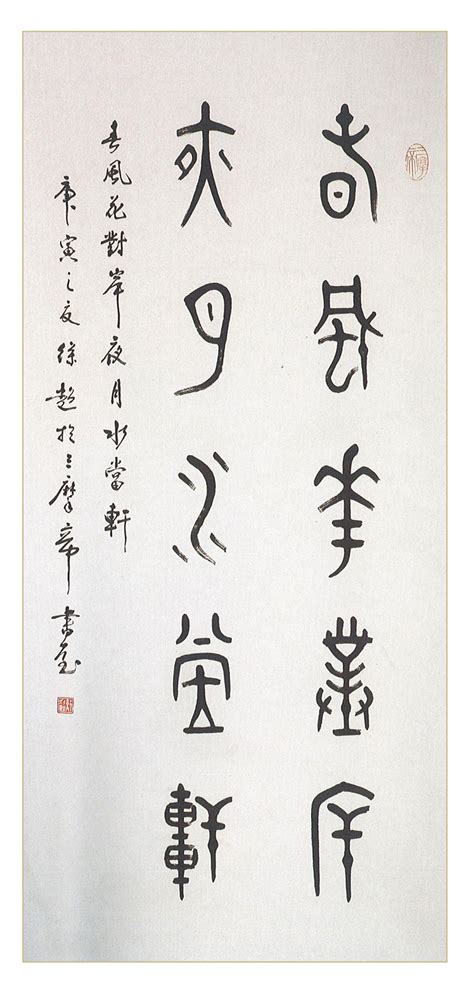 春風花對岸
夜月水當軒
春風花對岸夜月水當軒
庚寅之夏徐超於三摩帝書屋